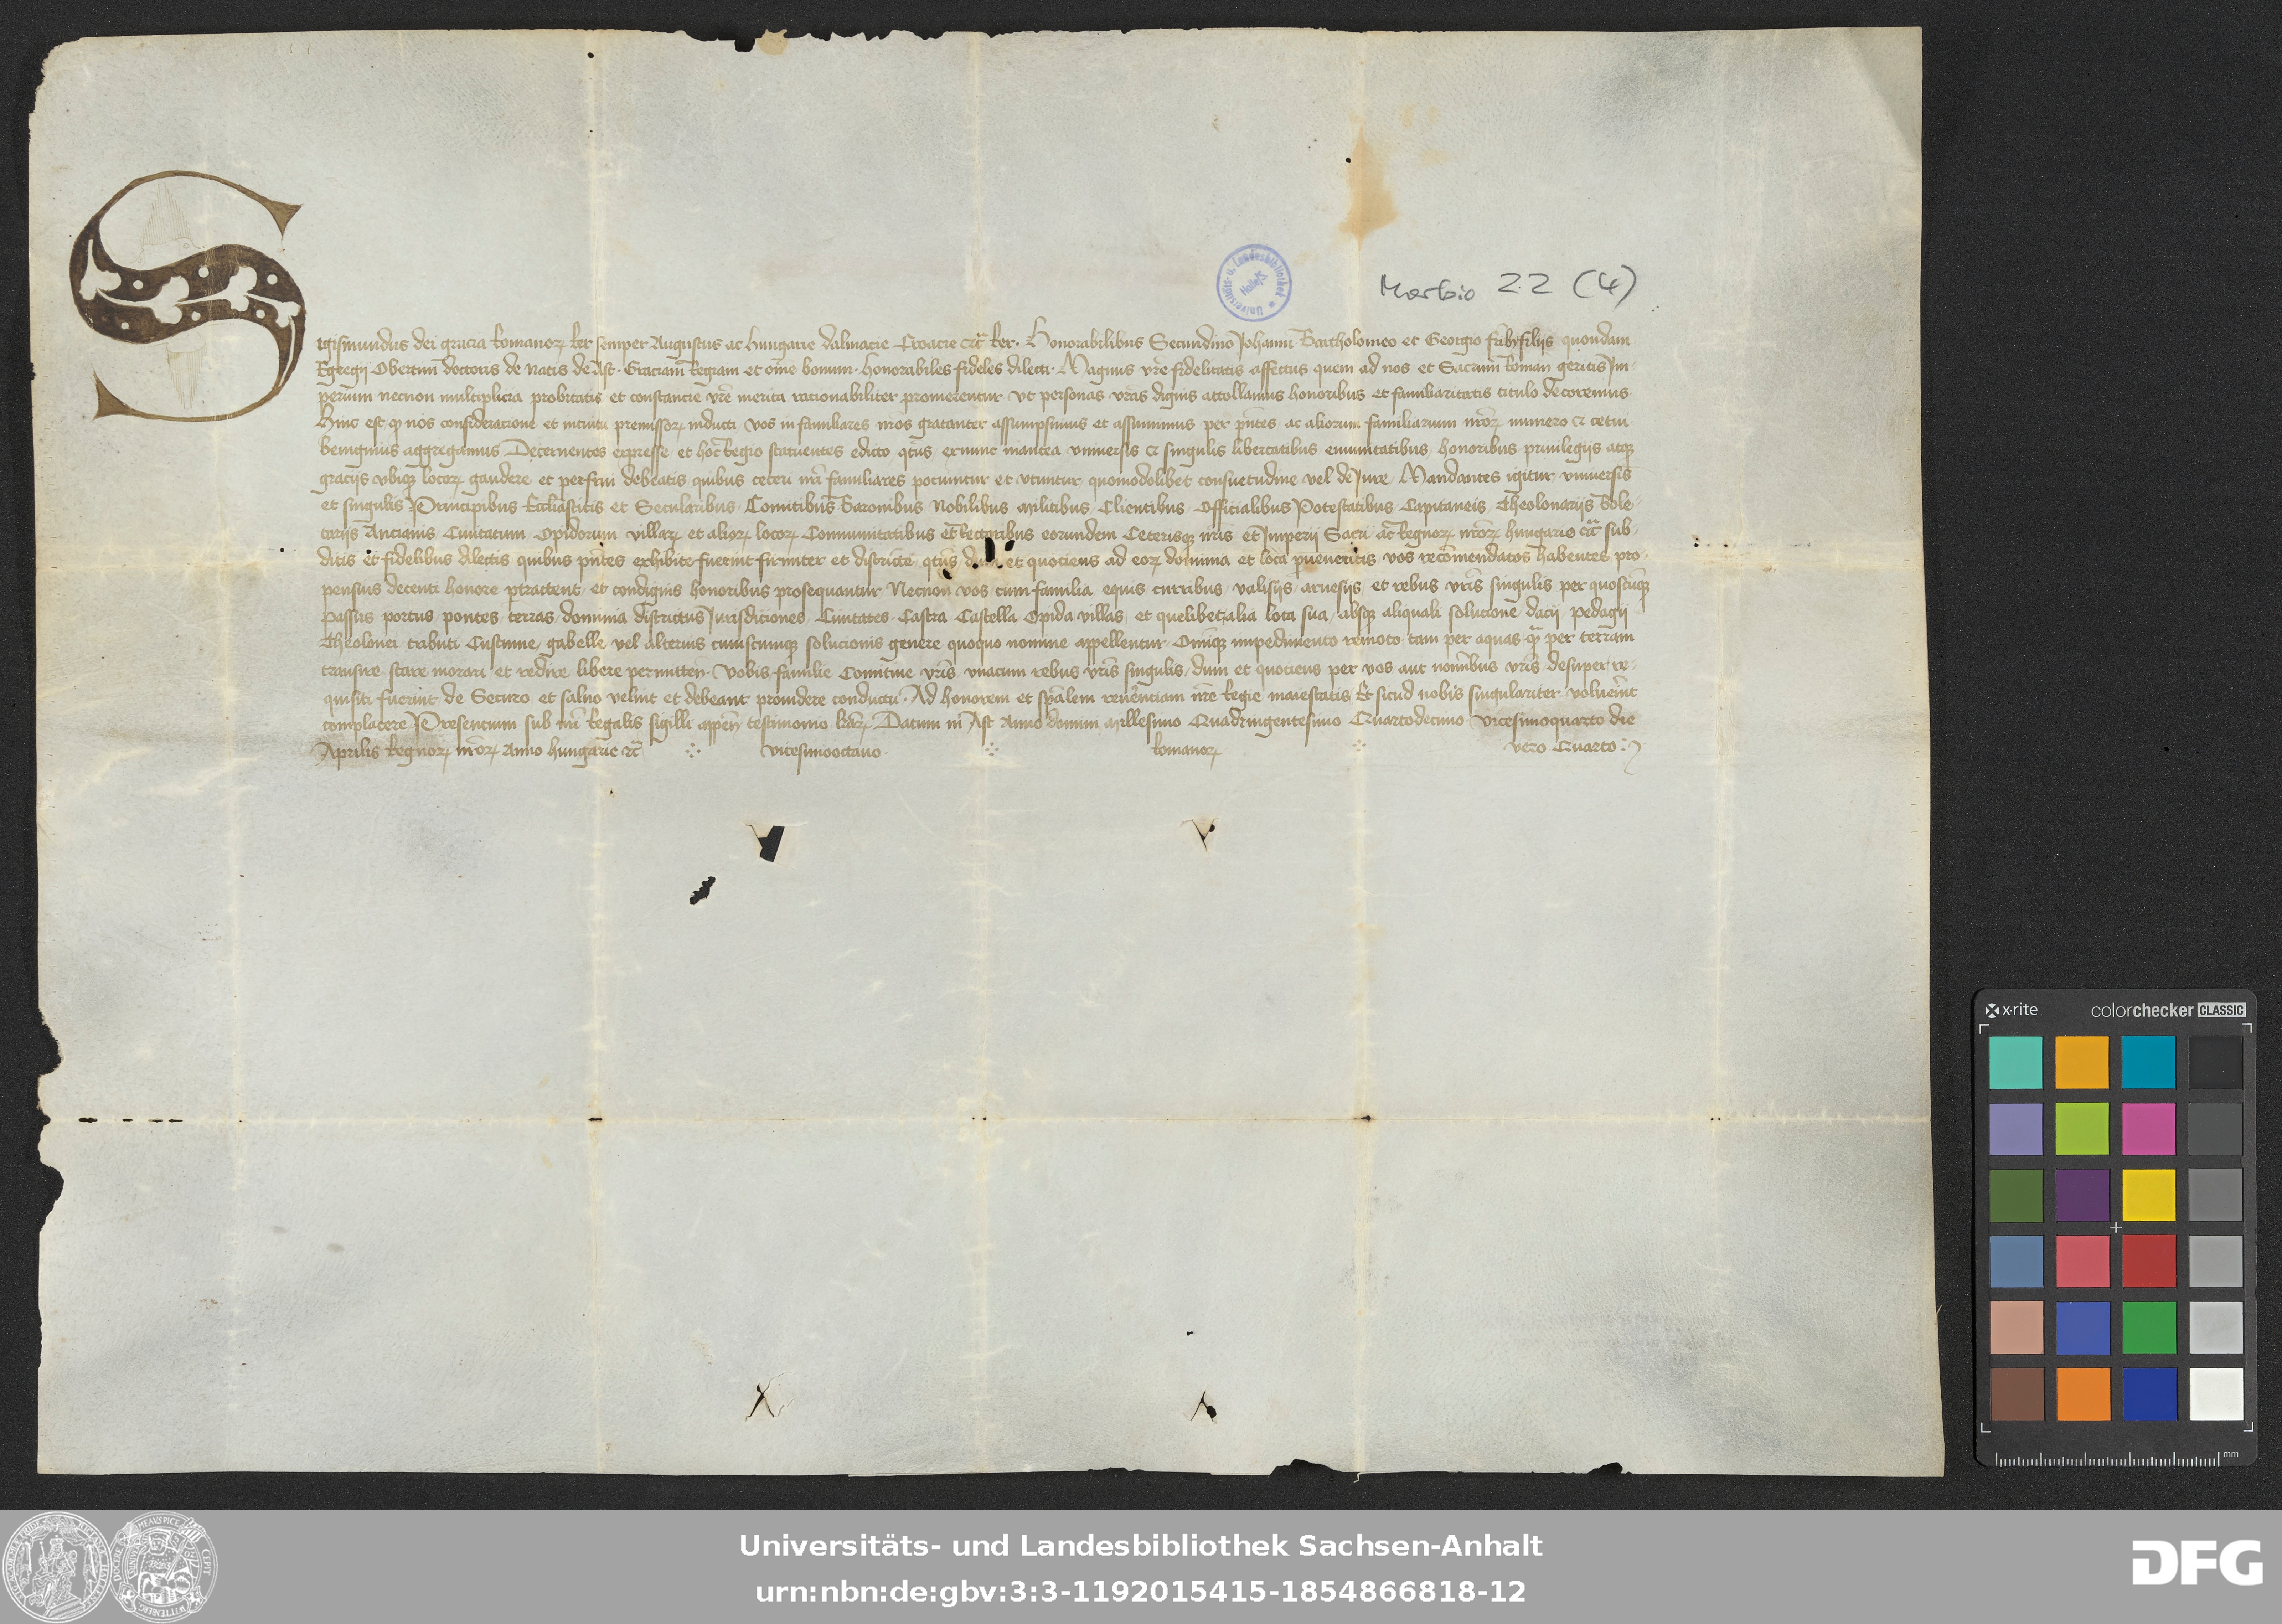 Morbio 22 (4)
Universitäts- u. Landesbibliothek Halle/S
Sigismundus dei gracia Romanorꝝ Rex semper Augustus ac Hungarie Dalmacie Croacie ꝛc̃ Rex. Honorabilibus Secundino Johanni Bartholomeo et Georgio fr̃ibꝫ filijs quondam
Egregij Obertini doctoris de Natis de Ast. Graciam Regiam et om̃e bonum. Honorabiles fideles dilecti. Magnus vr̃e fidelitatis affectus quem ad nos et Sacrum Roman geritis Im-
perium necnon multiplicia probitatis et constancie vr̃e merita racionabiliter promerentur vt personas vr̃as dignis attollamus honoribus et familiaritatis titulo decoremus
Hinc est ꝙ nos consideracione et intuitu premissorꝝ inducti vos in familiares nr̃os gratanter assumpsimus et assumimus per pñtes ac aliorum familiarium nr̃orꝝ numero ꝛ cetui
benignius aggregamus Decernentes expresse et hoc Regio statuentes edicto qt̃us exnunc inantea vniuersis ꝛ singulis libertatibus emunitatibus honoribus priuilegijs atqꝫ
gracijs vbiqꝫ locorꝝ gaudere et perfrui debeatis quibus ceteri nr̃i familiares pociuntur et vtuntur quomodolibet consuetudine vel de Iure Mandantes igitur vniuersis
et singulis Principibus Ecc̃liasticis et Secularibus Comitibus Baronibus Nobilibus Militibus Clientibus Officialibus Potestatibus Capitaneis Theolonarijs Bole-
tarijs Ancianis Ciuitatum Opidorum villarꝝ et aliorꝝ locorꝝ Communitatibus et Rectoribus eorundem Ceterisqꝫ nr̃is et Imperij Sacri ac Regnorꝝ nr̃orꝝ Hungarie ꝛc̃ sub-
ditis et fidelibus dilectis quibus pñtes exhibite fuerint firmiter et districte qt̃us et quociens ad eorꝝ dominia et loca pueneritis vos recommendatos habentes pro-
pensius decenti honore ptractent et condignis honoribus prosequantur Necnon vos cum familia equis curribus valisijs arnesijs et rebus vr̃is singulis per quoscũqꝫ
passus portus pontes terras dominia districtus Iurisdiciones Ciuitates Castra Castella Opida villas et quelibet alia loca sua absqꝫ aliquali solucione dacij pedagij
Theolonei tributi Custume gabelle vel alterius cuiuscumqꝫ solucionis genere quoquo nomine appellentur Omniqꝫ impedimento remoto tam per aquas ꝙ̃ per terram
transire stare morari et redire libere permitten. Vobis familie Comitiue vr̃is vnacum rebus vr̃is singulis dum et quociens per vos aut nominibus vr̃is desuper re-
quisiti fuerint de Securo et saluo velint et debeant prouidere conductu. Ad honorem et sp̃alem reuerenciam nr̃e Regie maiestatis Et sicud nobis singulariter voluerint
complacere Presencium sub nr̃i Regalis sigilli appeñ testimonio lr̃arꝝ Datum in Ast Anno domini Millesimo Quadringentesimo Quartodecimo Vicesimoquarto die
Aprilis Regnorꝝ nr̃orꝝ Anno Hungarie ꝛc̃ vicesimooctauo Romanorꝝ vero Quarto
x-rite colorchecker CLASSIC
mm
Universitäts- und Landesbibliothek Sachsen-Anhalt
urn:nbn:de:gbv:3:3-1192015415-1854866818-12
DFG